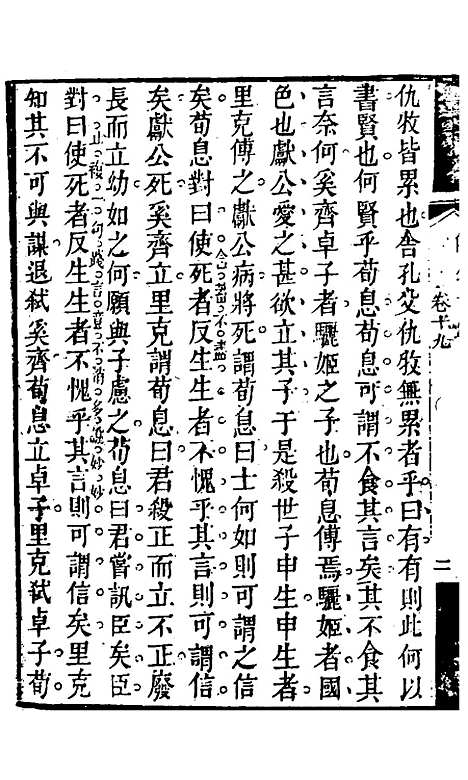 卷十九
二
仇牧皆累也舍孔父仇牧無累者乎曰有有則此何以
書賢也何賢乎荀息荀息可謂不食其言矣其不食其
言奈何奚齊卓子者驪姬之子也荀息傅焉驪姬者國
色也獻公愛之甚欲立其子于是殺世子申生申生者
里克傅之獻公病將死謂荀息曰士何如則可謂之信
矣荀息對曰使死者反生生者不愧乎其言則可謂信
矣獻公死奚齊立里克謂荀息曰君殺正而立不正廢
長而立幼如之何願與子慮之荀息曰君嘗訊臣矣臣
對曰使死者反生生者不愧乎其言則可謂信矣里克
止殺一句踐言意不消多說妙妙
知其不可與謀退弒奚齊荀息立卓子里克弒卓子荀